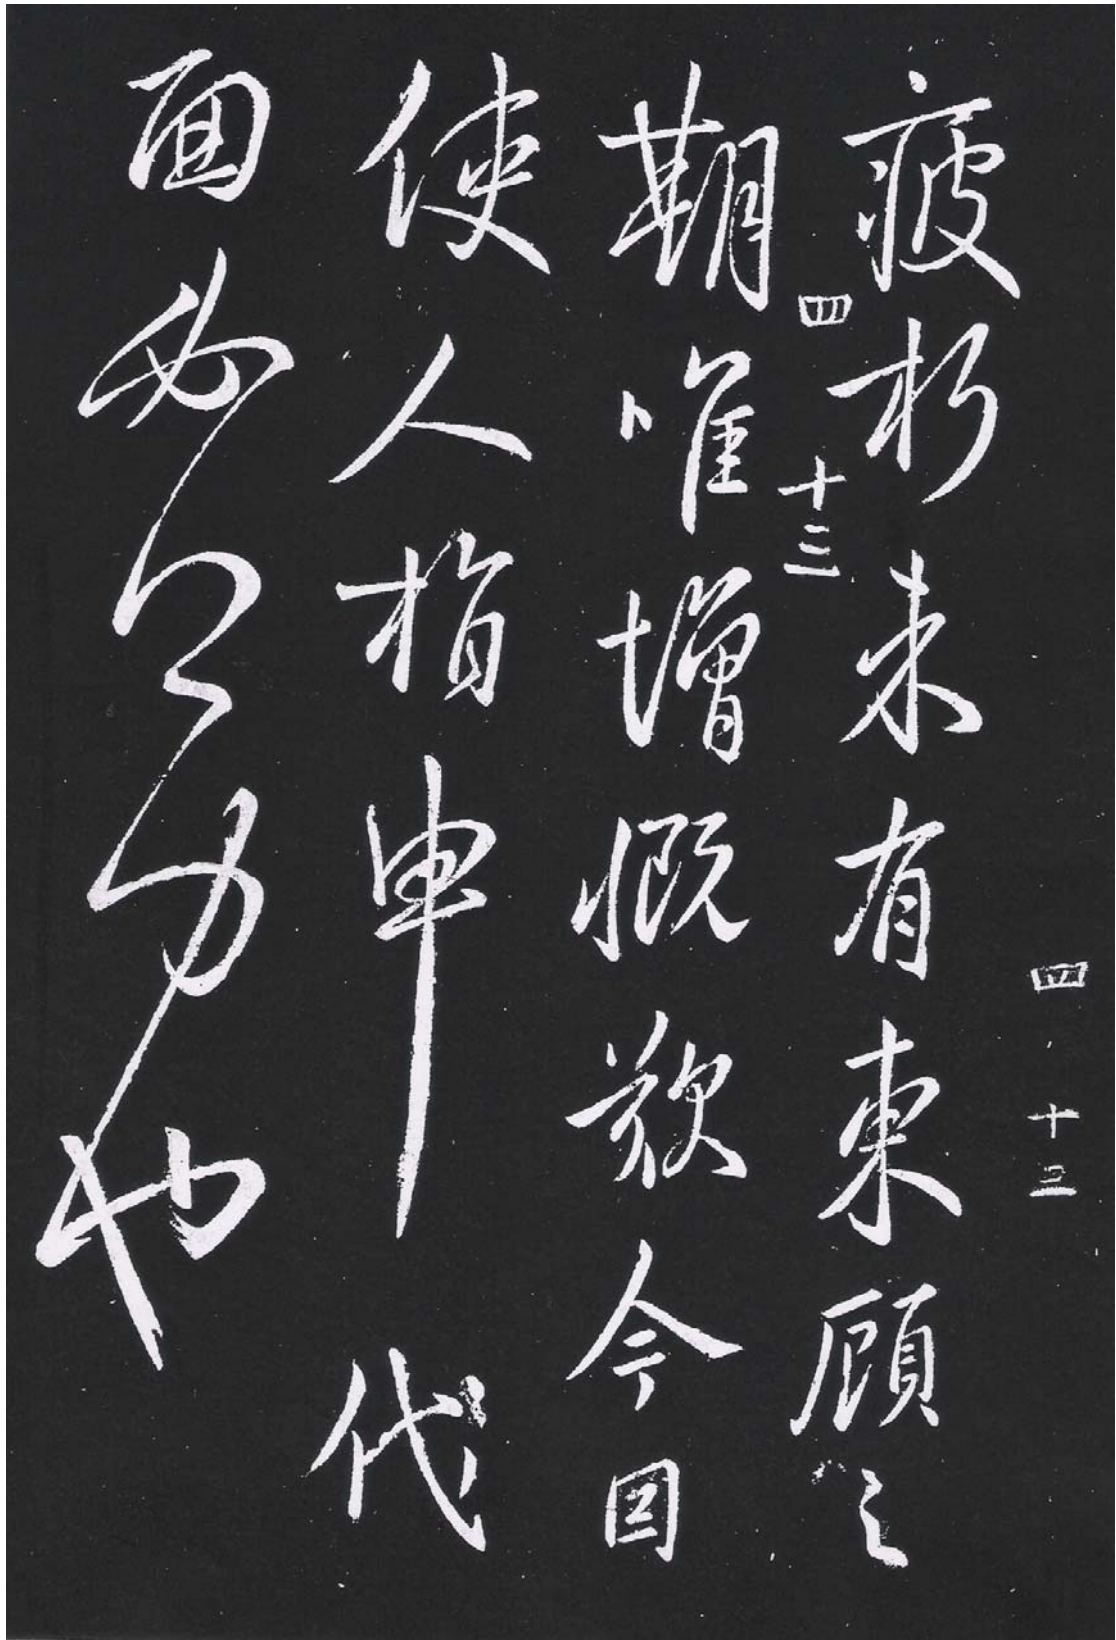 四 十三
疲朽未有東顧之
四 十三
期唯增慨歎今因
使人指申代
面 也